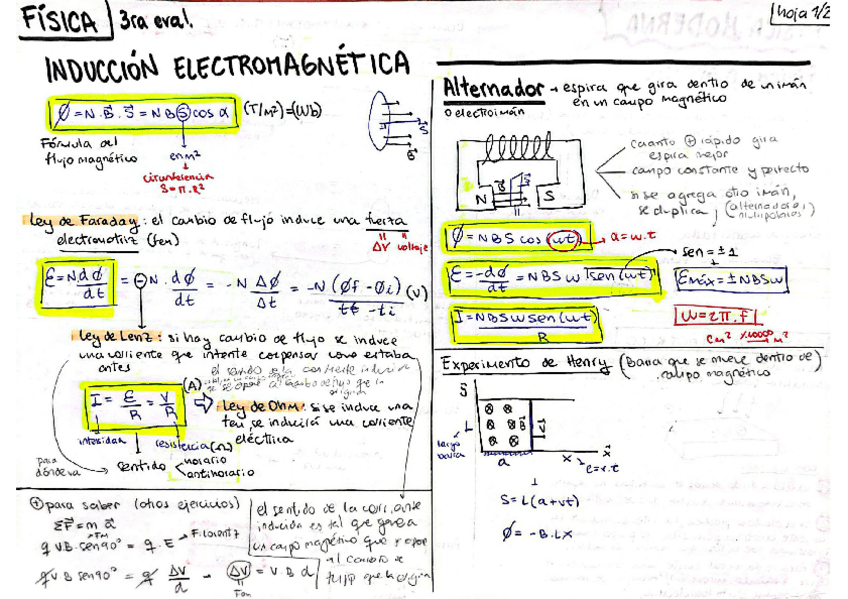 FÍSICA 3ra eval.
hoja 1/2
INDUCCIÓN ELECTROMAGNÉTICA
Ø = N·B·S = N B S cos α (T/m²)=(Wb)
Fórmula del
flujo magnético
en m²
circunferencia
S = π·R²
Ley de Faraday: el cambio de flujo induce una fuerza
electromotriz (fem)
ΔV voltaje
ε = N dØ/dt = -N·dØ/dt = -N ΔØ/Δt = -N (Øf - Øi)/tf - ti (V)
Ley de Lenz: si hay cambio de flujo se induce
una corriente que intente compensar como estaba
antes
I = ε/R = V/R (A)
Ley de Ohm: si se induce una
fem, se inducirá una corriente
eléctrica
intesidad
resistencia (Ω)
para
dónde va
sentido
horario
antihorario
⊕ para saber (otros ejercicios)
ΣF = m a
q v B · sen90° = q·E
F. Lorentz
q v B sen90° = q ΔV/d → ΔV = V·B·d
Fem
el sentido de la corriente
inducida es tal que genera
un campo magnético que se opone
al cambio de
flujo que la origina
Alternador → espira que gira dentro de un imán
o electroimán
en un campo magnético
N S
cuanto ⊕ rápido gira
espira mejor
campo constante y perfecto
si se agrega otro imán,
se duplica, (alternadores
multipolares)
Ø = NBS cos (wt) → α = w·t
ε = -dØ/dt = NBS w sen(wt)
sen = ±1
εmáx = ±NBSw
I = NBSw sen(wt)/R
w = 2π·f
cm² m²
Experimento de Henry (Barra que se mueve dentro de)
campo magnético
S
L
largo
barra
a
B
x
x
e=v·t
S = L(a+vt)
Ø = -B·Lx